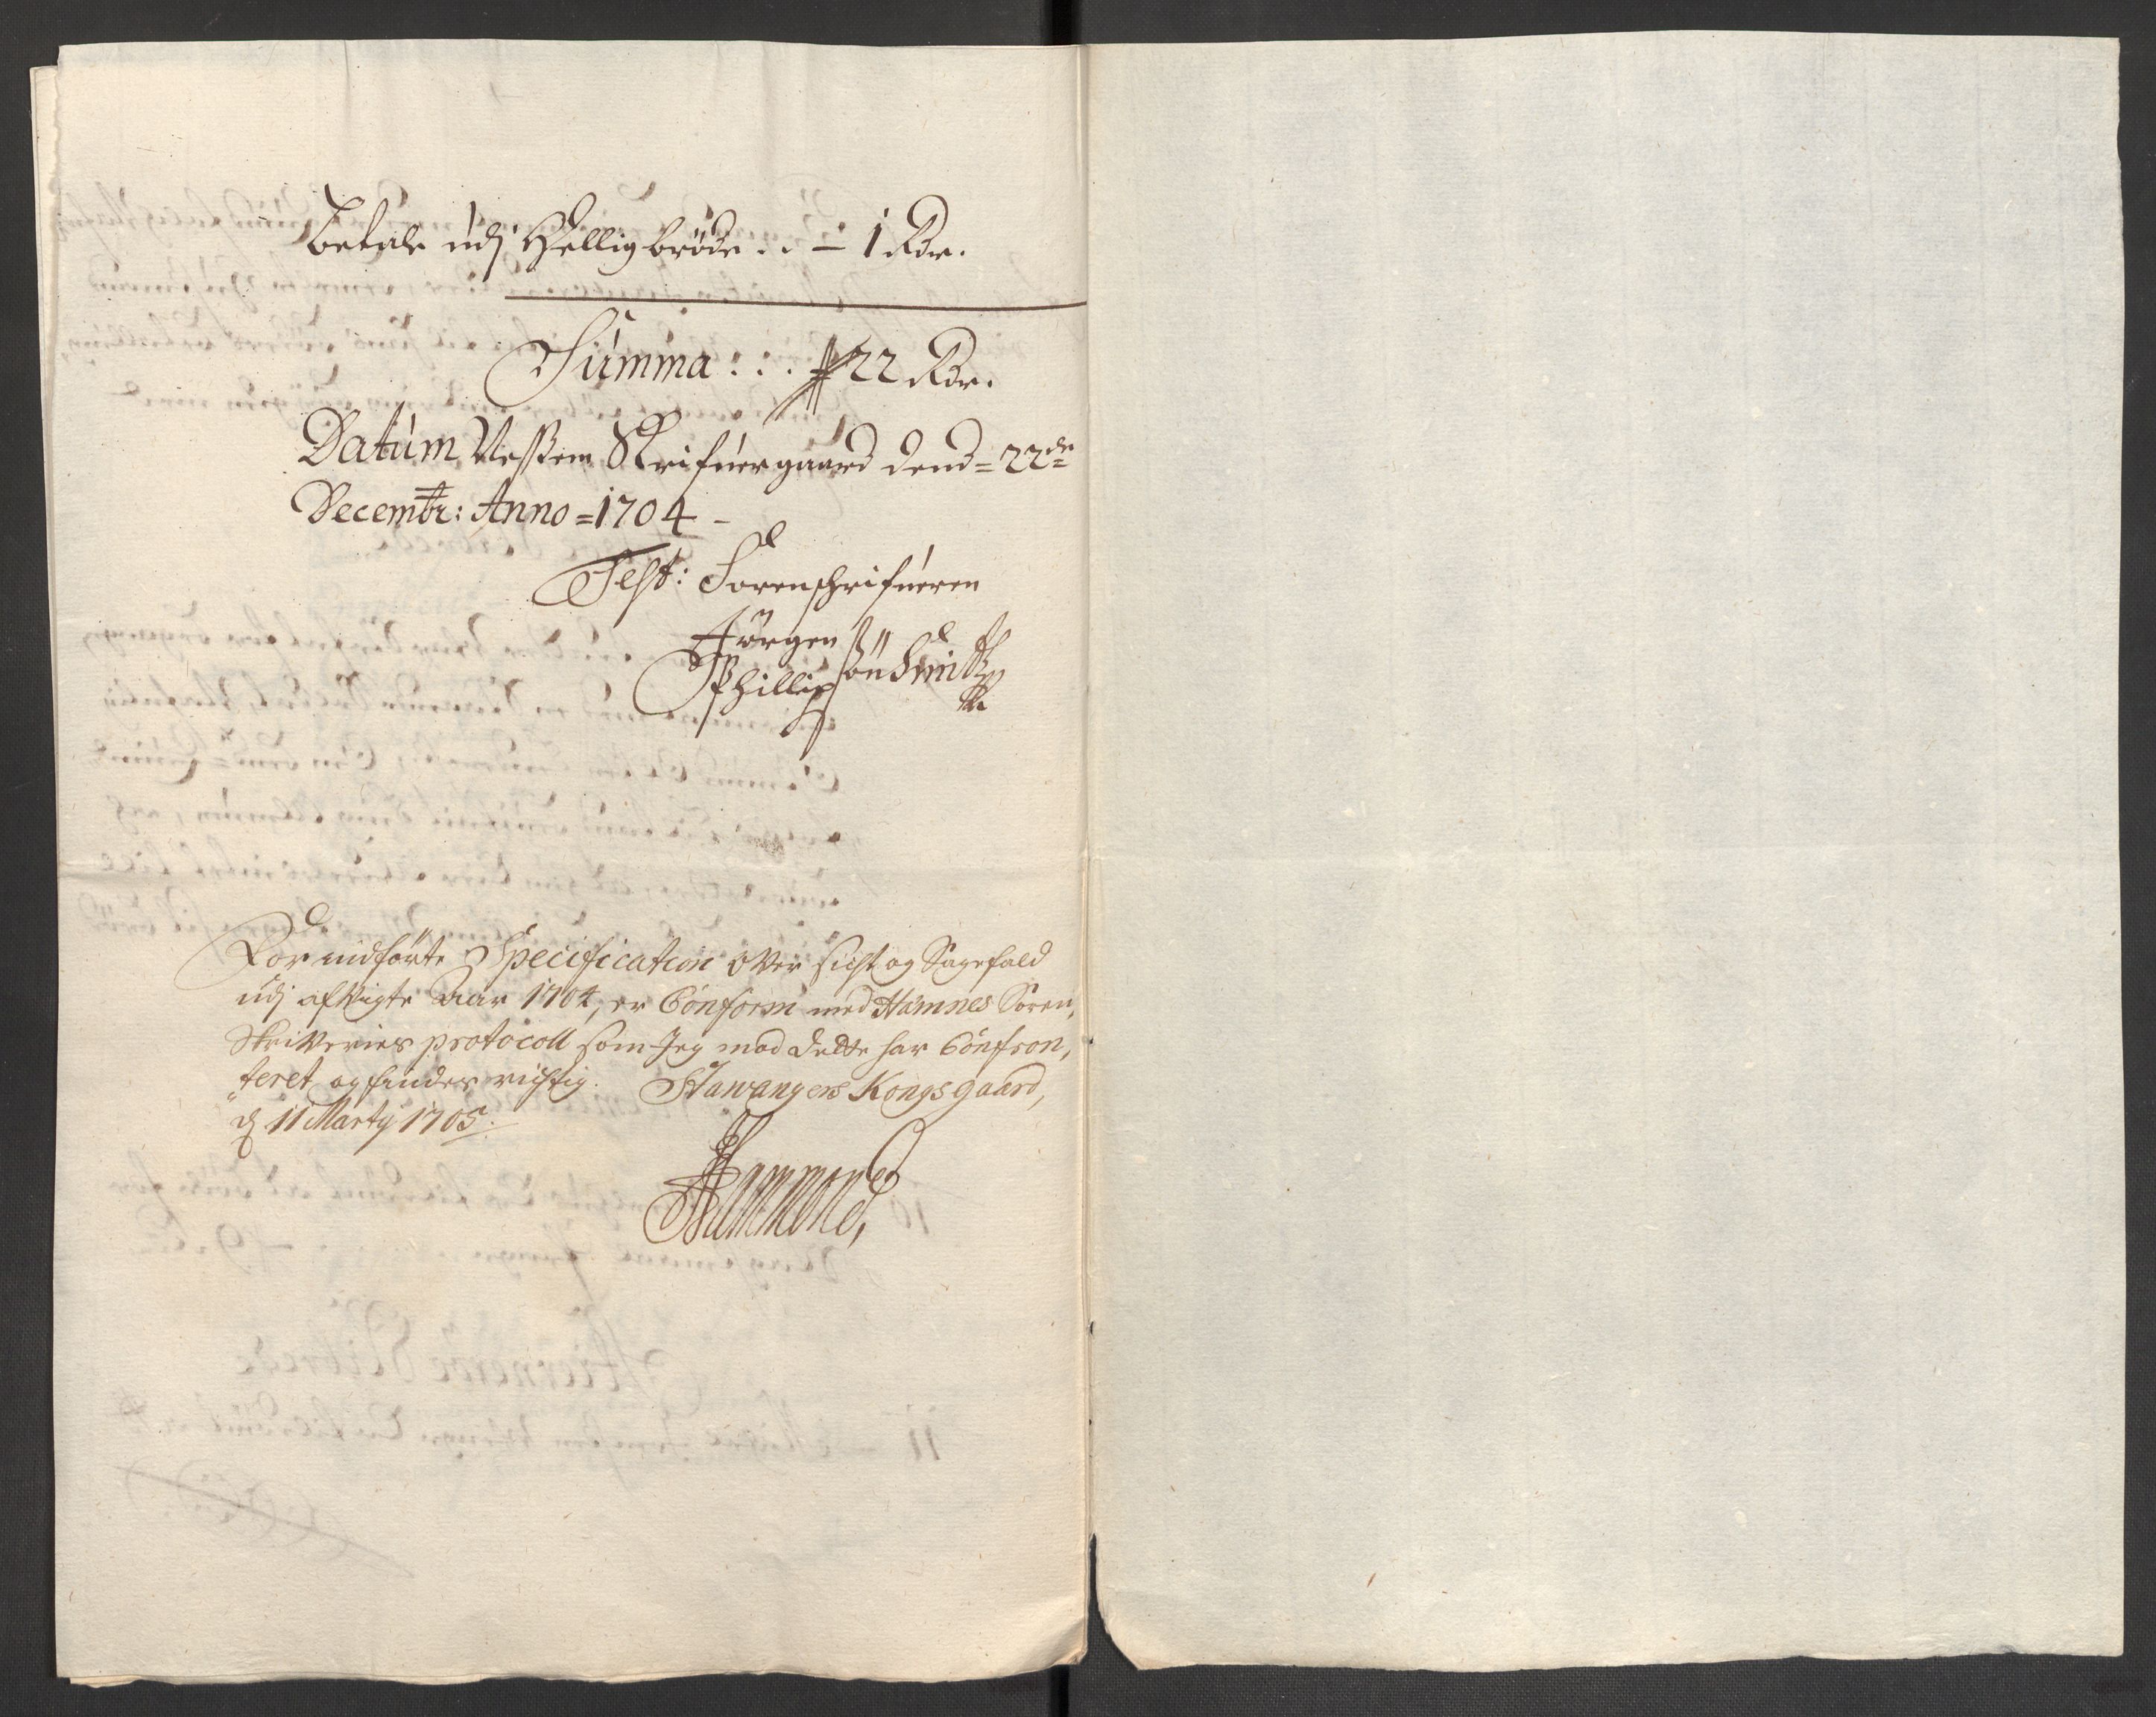 betale udj Helligbröde . . – 1 Rdr.
Summa : : . 22 Rdr.
Datum Neßem Skrifuergaard dend = 22de
Decembr: Anno = 1704 –
Test: Sorenschrifueren
Jörgen
Phillipsön Smitt
For indförte Specification over sigt og Sagefald
udj afvigte aar 1704, er Conform med Hamnes Soren,
Skriveries protocoll som Jeg mod dette har Confron,
teret og findes rigtig. Stawangers Kongsgaard,
d 11 Marty 1705.
Hammond,